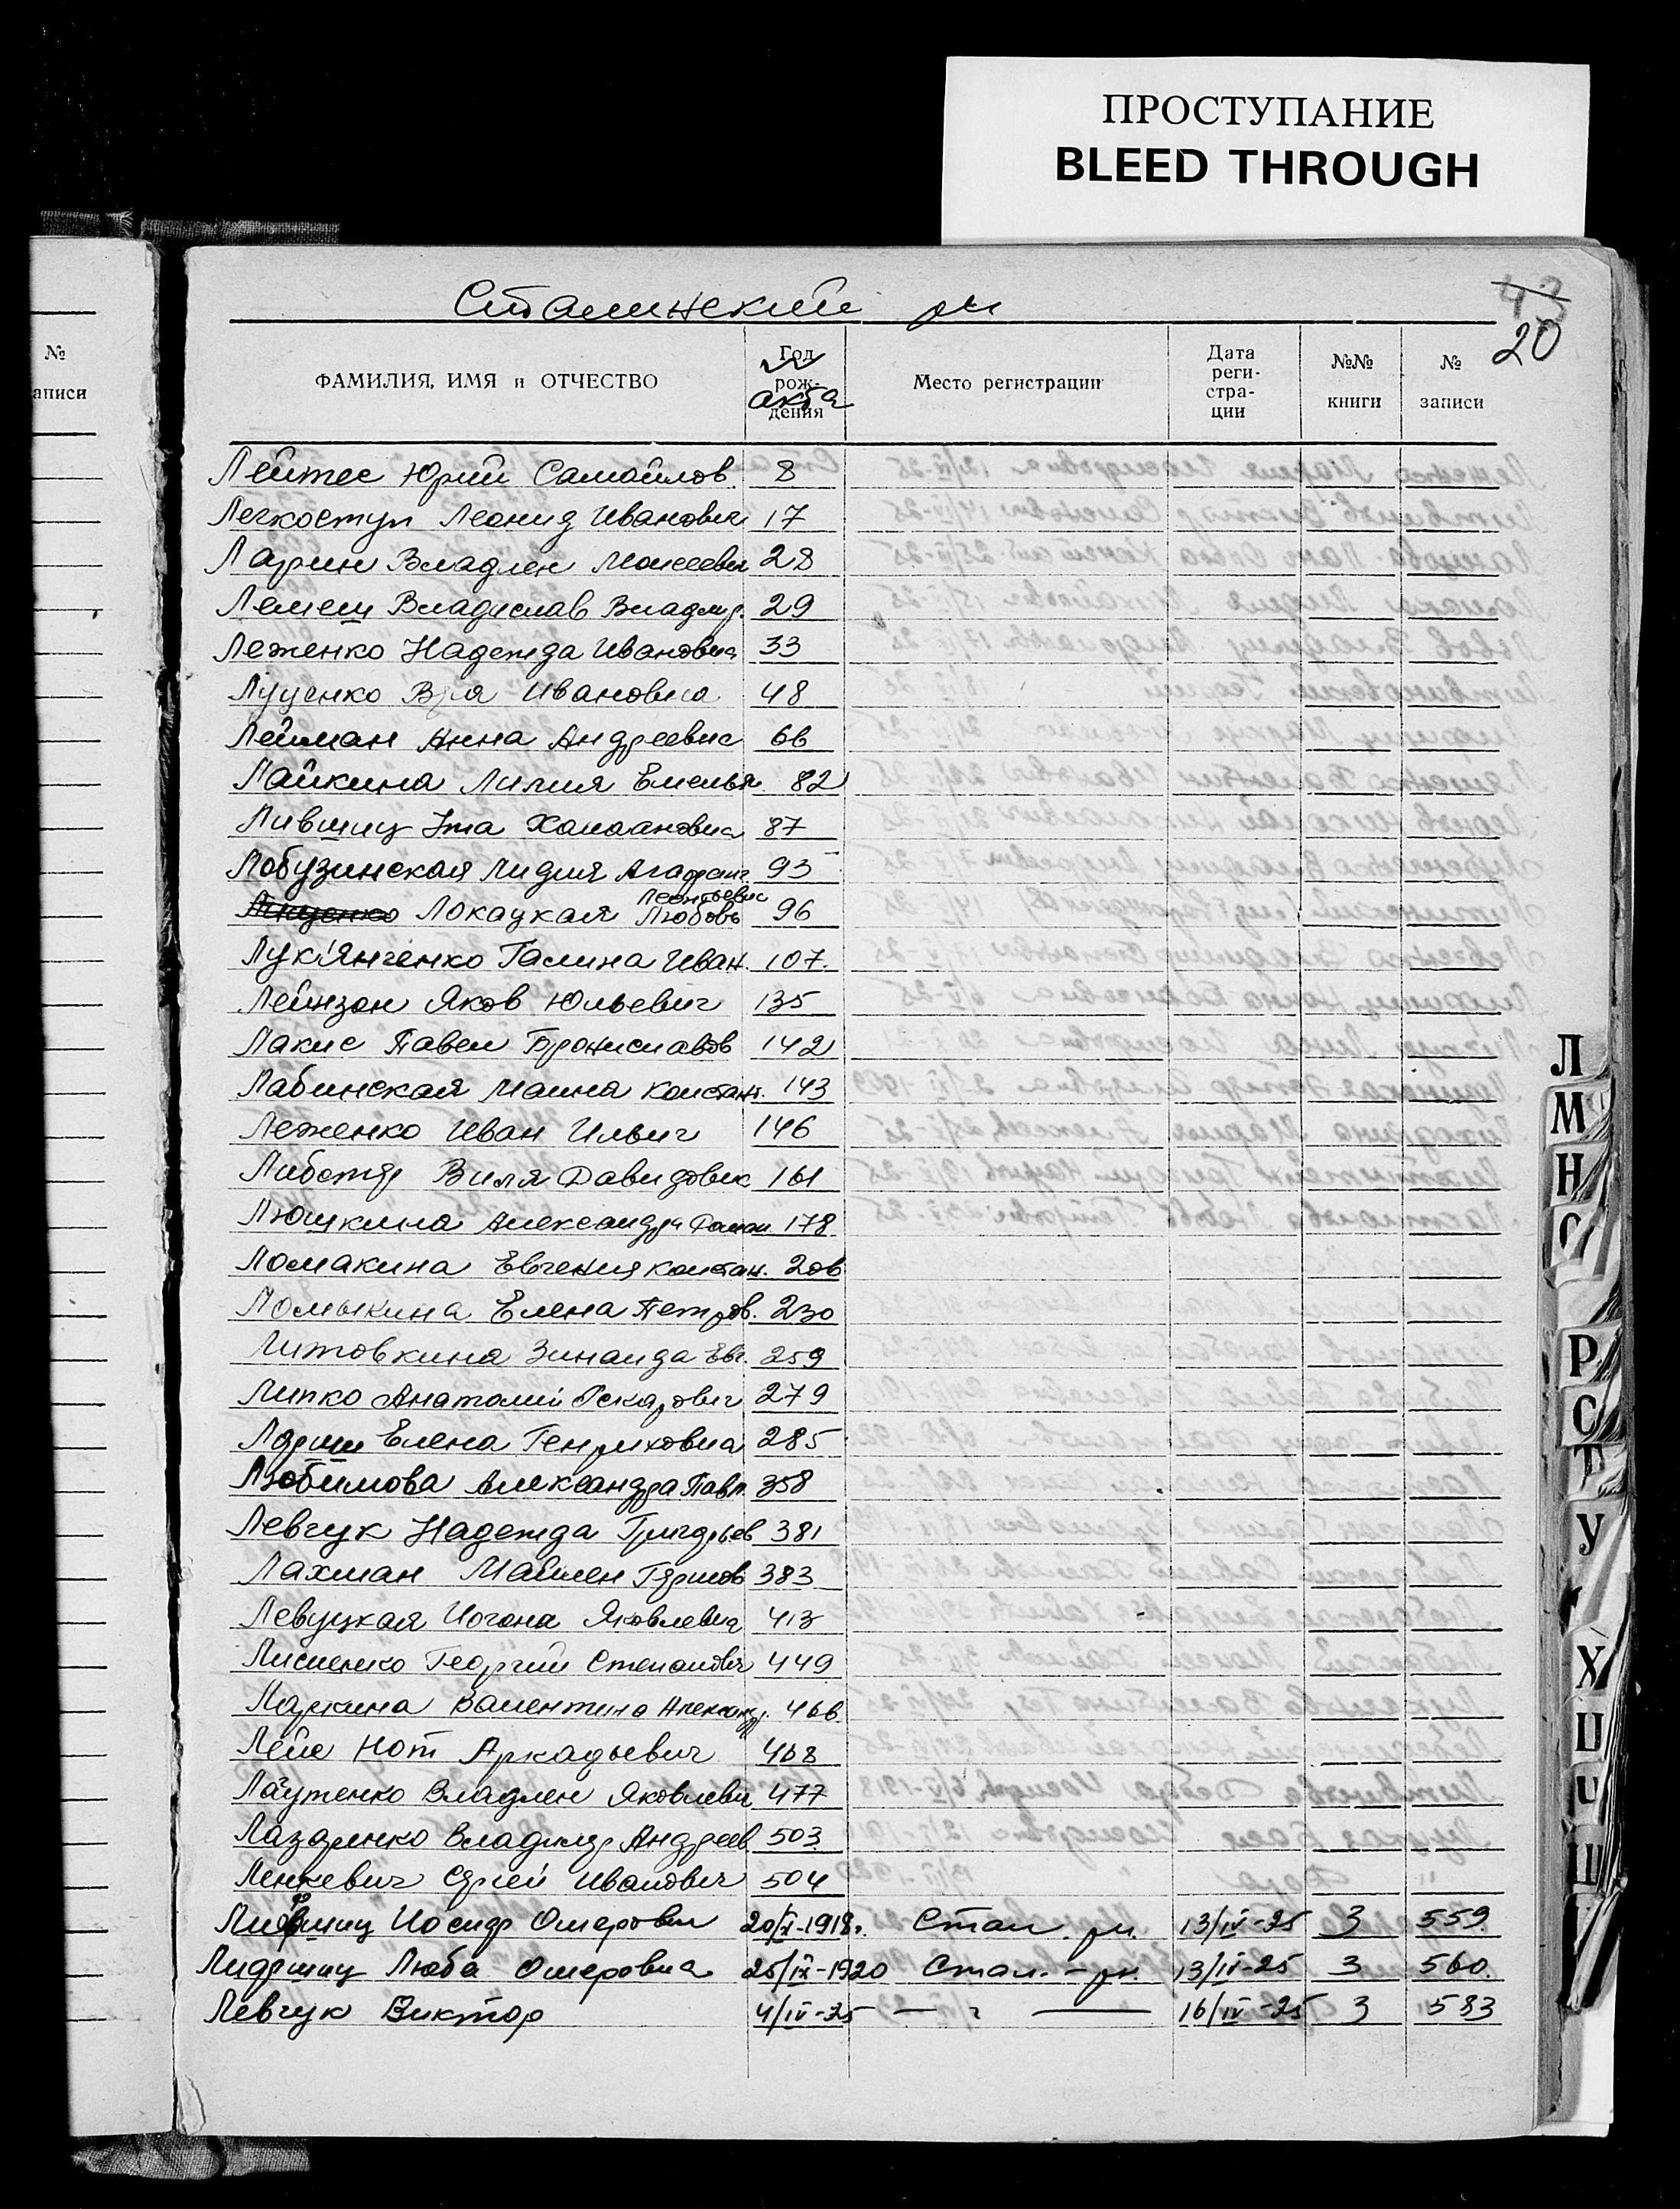 ПРОСТУПАНИЕ
BLEED THROUGH
Сталинский рн
43
20
№
аписи
ФАМИЛИЯ, ИМЯ и ОТЧЕСТВО Год рож- дения Место регистрации Дата реги- стра- ции №№ книги № записи
№ акта
Лейтес Юрий Самойлов. 8
Легкоступ Леонид Иванович 17
Ларин Владлен Моисеевич 28
Лемеш Владислав Владмр. 29
Леженко Надежда Ивановна 33
Луценко Вра Ивановна 48
Лейман Анна Андреевна 66
Лайкина Лилия Емельян. 82
Лившиц Ита 87
Лобузинская Лидия 93
Локацкая Любовь Леонтьевна 96
Лук'янченко Галина Иван. 107.
Лейнзон Яков Юльевич 135
Лакис Павел Брониславов 142
Лабинская Маина Констант. 143
Леженко Иван Ильич 146
Виля Давидович 161
Люшкина Александра 178
Ломакина Евгения констан. 206
Ломыкина Елена Петров. 230
Литовкина Зинаида Евг. 259
Липко Анатолий Оскарович 279
Елена Генриховна 285
Любимова Александра Павл. 358
Левчук Надежда Григорьев 381
Лахман 383
Левуцкая Иогана Яковлевна 413
Лисиенко Георгий Степанович 449
Валентина Александр. 466
Лейе Нот Аркадьевич 468
Лаутенко Владлен Яковлевич 477
Лазаренко Владимир Андреев. 503
Ленкевич Сергей Иванович 504
Лифшиц Иосиф Ошерович 20/X-1918г. Стал. рн. 13/IV-25 3 559.
Лифшиц Люба Ошеровна 25/IX-1920 Стал. - рн. 13/IV-25 3 560.
Левчук Виктор 4/IV-25 — " — 16/IV-25 3 583
Л
М
Н
О
Р
С
Т
У
Х
Ц
Ч
Ш